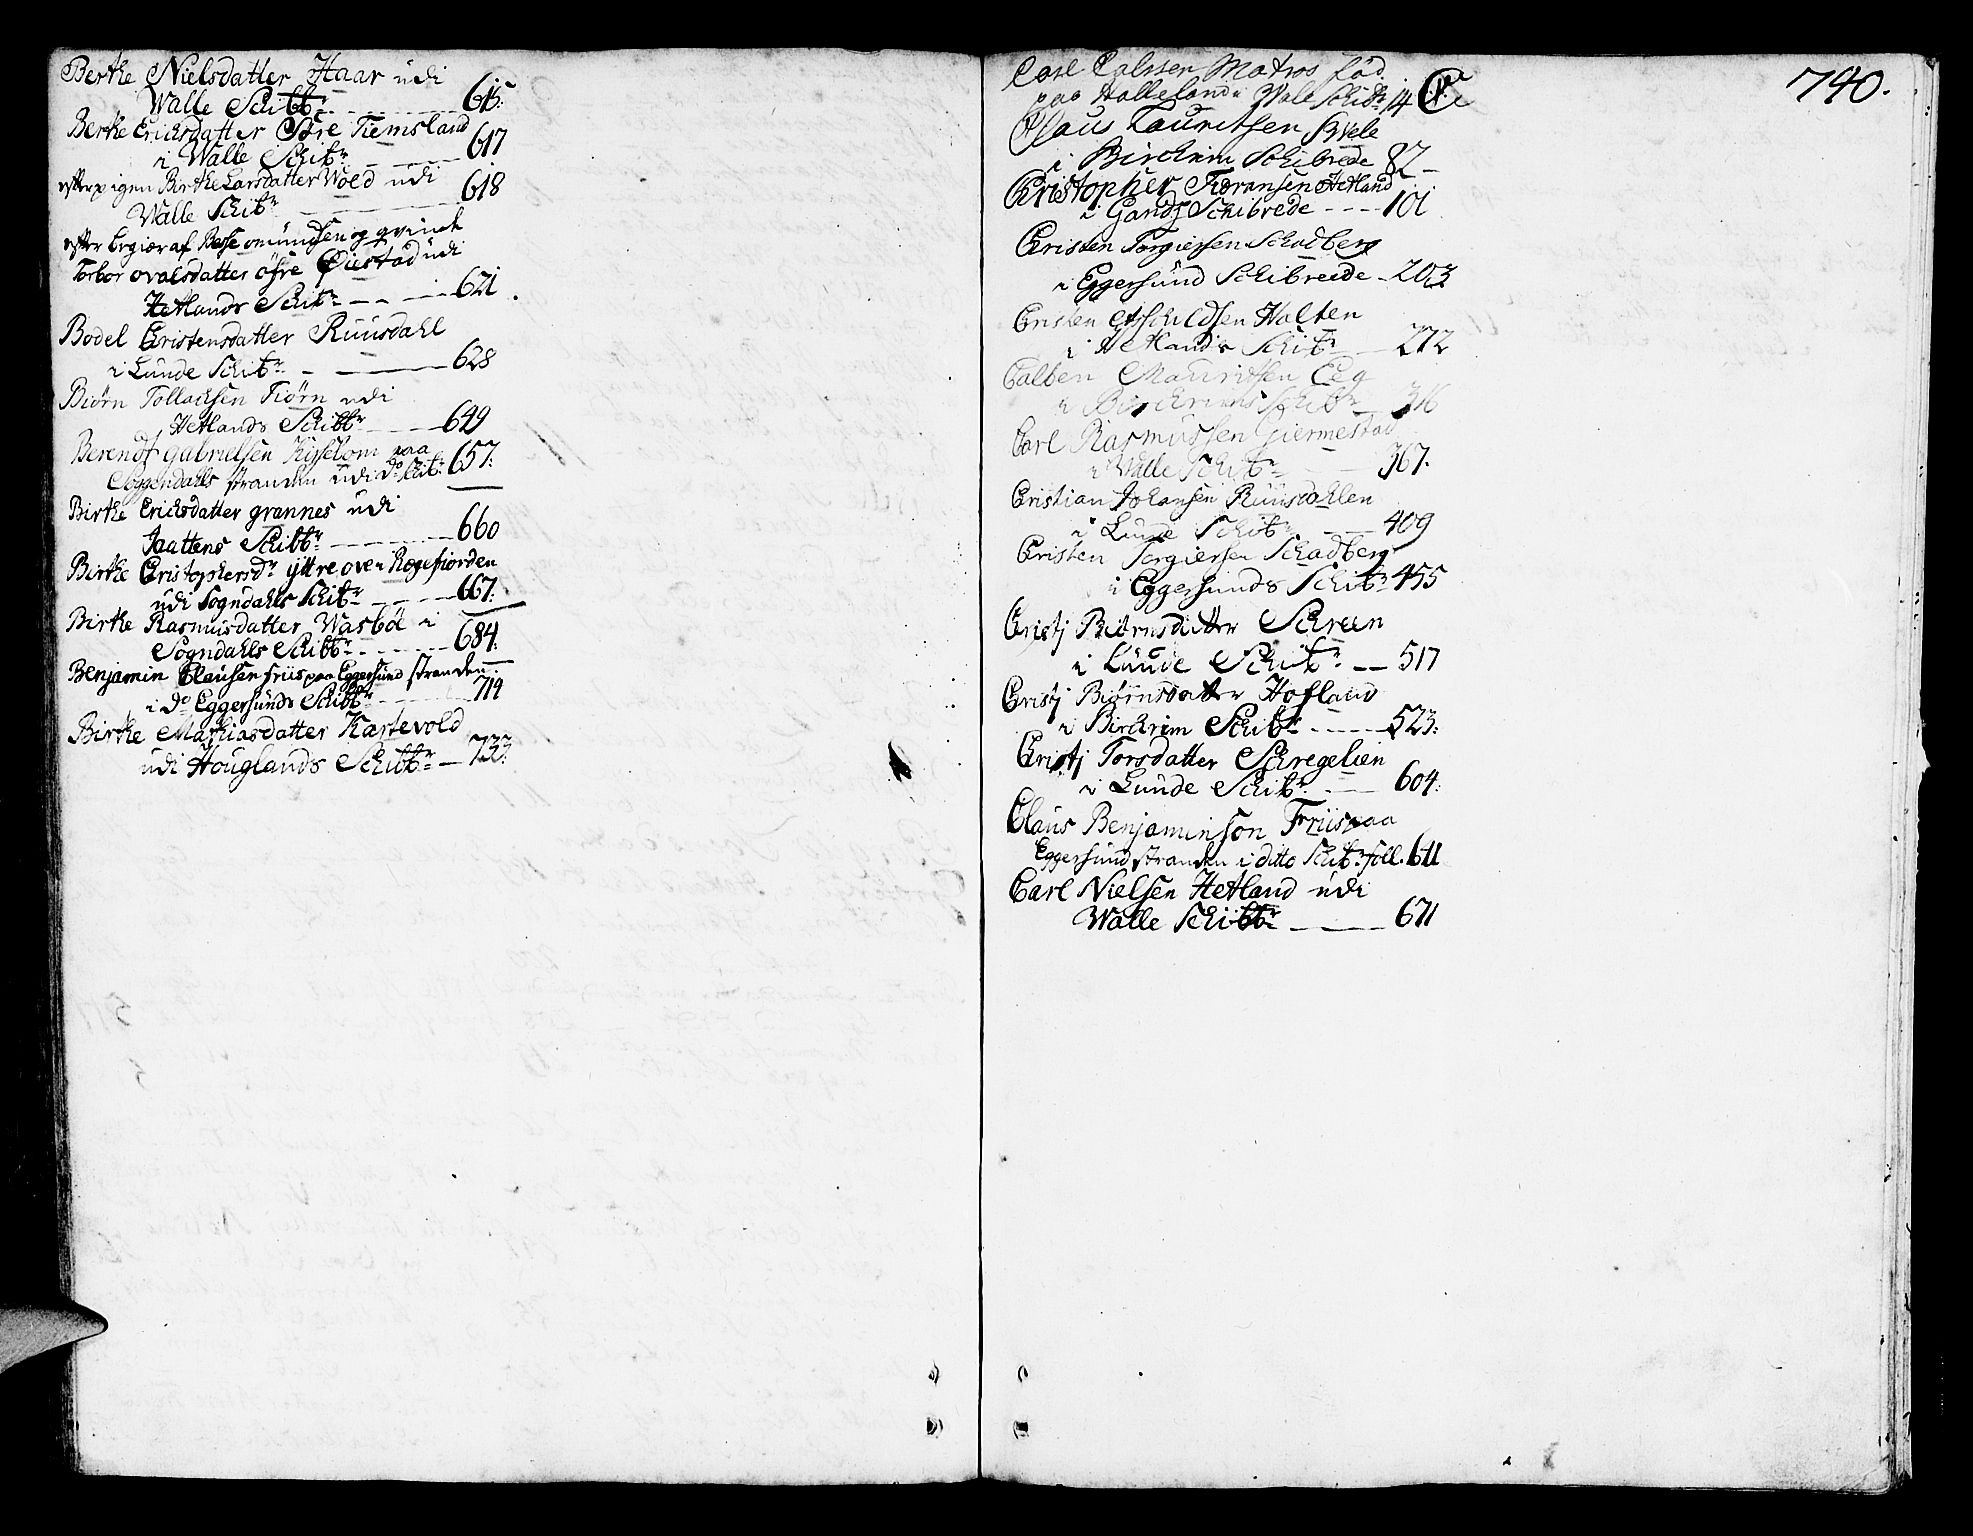 Berthe Nielsdatter Haar udi
Walle Schibbr 615:
Berthe Ericksdatter Søre Tiemsland
i Walle Schibr 617
efter pigen Birthe Larsdatter Wold udi
Walle Schibr 618
efter
Torbor øfre Øiestad udi
Hetlands Schibr 621
Bodel Christensdatter Ruusdahl
i Lunde Schibr 628
Biørn Tollachsen Tiørn udi
Hetlands Schibbr 649
Berendt Gabrielsen paa
Soggendahls stranden udi do Schibr 657:
Birthe Ericksdatter grannes udi
Jaattens Schibbr 660
Birthe Christophersdr yttre over Regefiorden
udi Sogndahls Schibr 667:
Birthe Rasmusdatter Wasbøe i
Sogndahls Schibbr 684:
Benjamin Clausen Friis paa Eggersund stranden
i do Eggersunds Schibbr 714
Birthe Mathiasdatter Kartevold
udi Houglands Schibbr 733:
740.
C
Carl Matros fød
paa i Wale Schibr 14
Claus Lauritsen
i Birchrim Schibrede 82
Christopher Hetland
i Gands Schibrede 101
Christen Torgiersen Schadberg
i Eggersund Schibreede 203
Cristen Halten
i Hetlands Schibr 272
Mauritsen Eeg
i Birchrims Schibr 316
Carl Rasmussen Giermestad
i Walle Schibr 367.
Christian Johansen Ruusdahlen
i Lunde Schibr 409
Christen Torgiersen Schadberg
i Eggersunds Schibr 455
Christj Biørnsdatter Schreen
i Lunde Schibr 517
Christj Biørnsdatter Hofland
i Birchrim Schibr 523:
Christj Torsdatter Schregelien
i Lunde Schibr 604:
Claus Benjaminson Friis paa
Eggersund stranden i ditto Schibr foll. 611
Carl Nielsen Hetland udi
Walle Schibbr 671